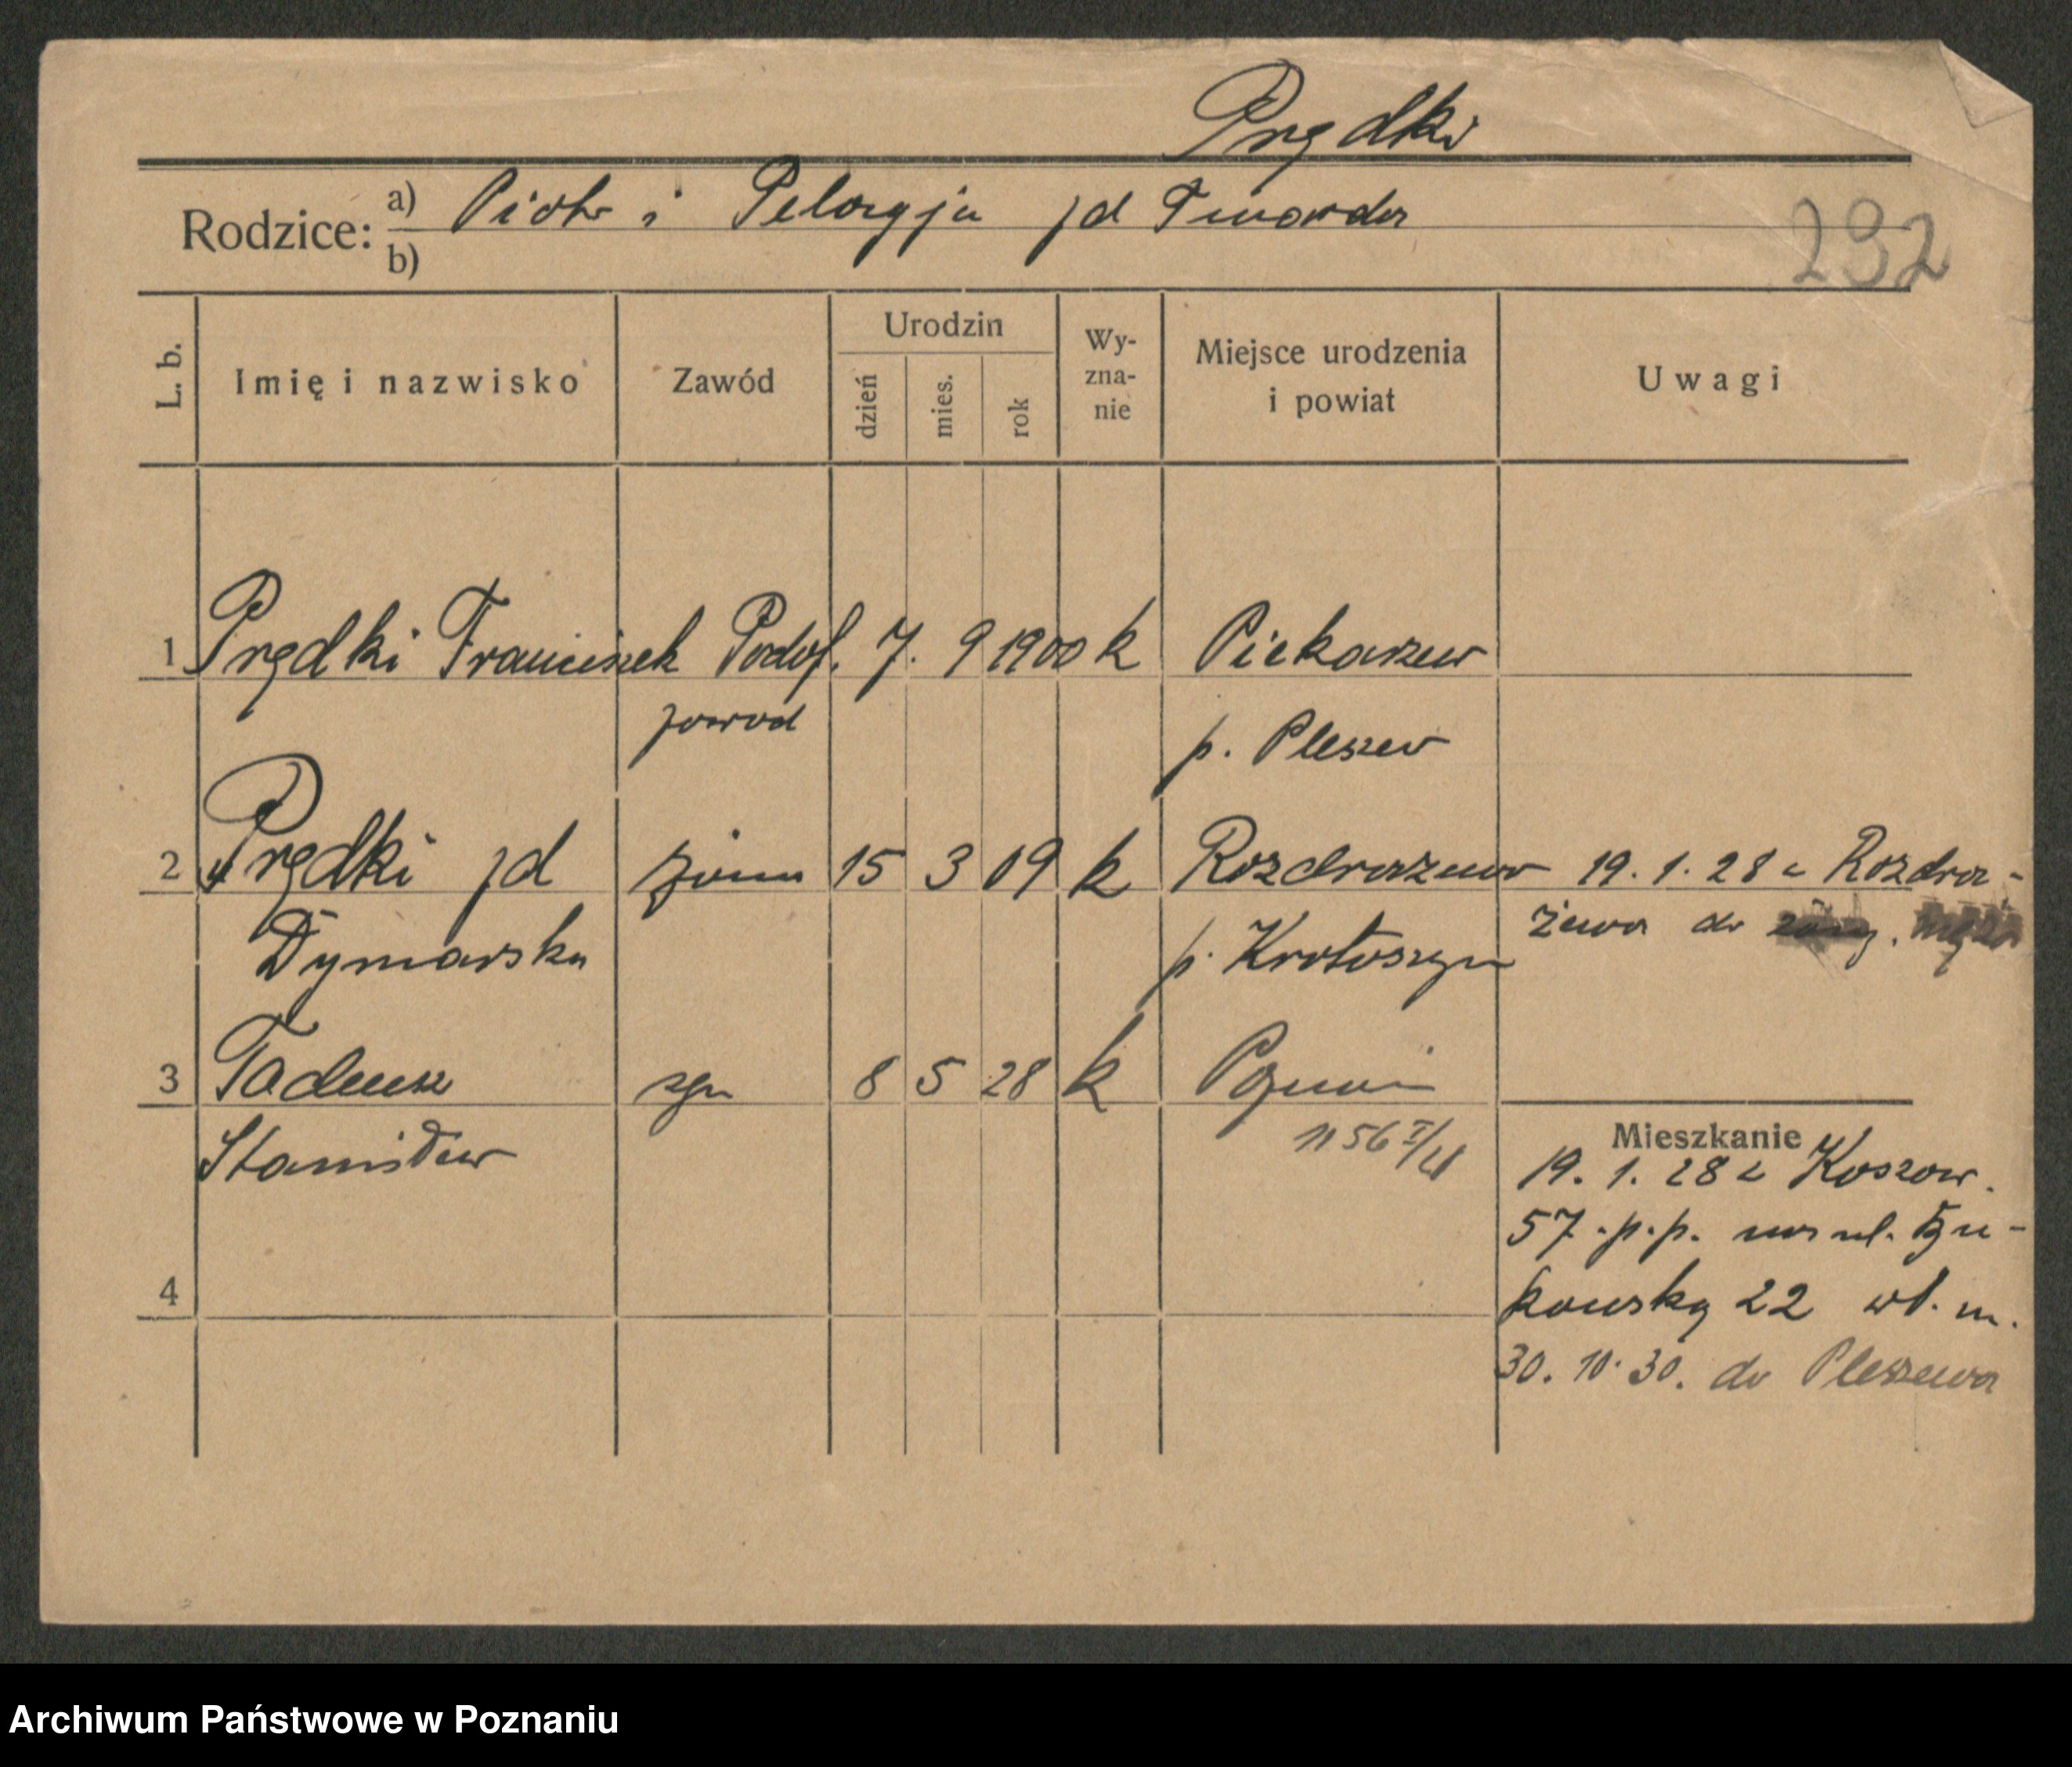 Prędki
Rodzice: a) Piotr i Pelagja zd Twarda
b)
232
L. b. Imię i nazwisko Zawód Urodzin dzień mies. rok Wy-zna-nie Miejsce urodzenia i powiat Uwagi
1 Prędki Franciszek Podof. 7. 9 1900 k Piekarzew
zawod p. Pleszew
2 Prędki zd żona 15 3 09 k Rozdrażewo 19. 1. 28 z Rozdra-
Dymarska p. Krotoszyn żewa do męża
3 Tadeusz syn 8 5 28 k Poznań
Stanisław 1156 I/28
Mieszkanie
19. 1. 28 z Koszar.
57. p. p. na ul.
4 kowską 22 wł. m.
30. 10. 30. do Pleszewa
Archiwum Państwowe w Poznaniu